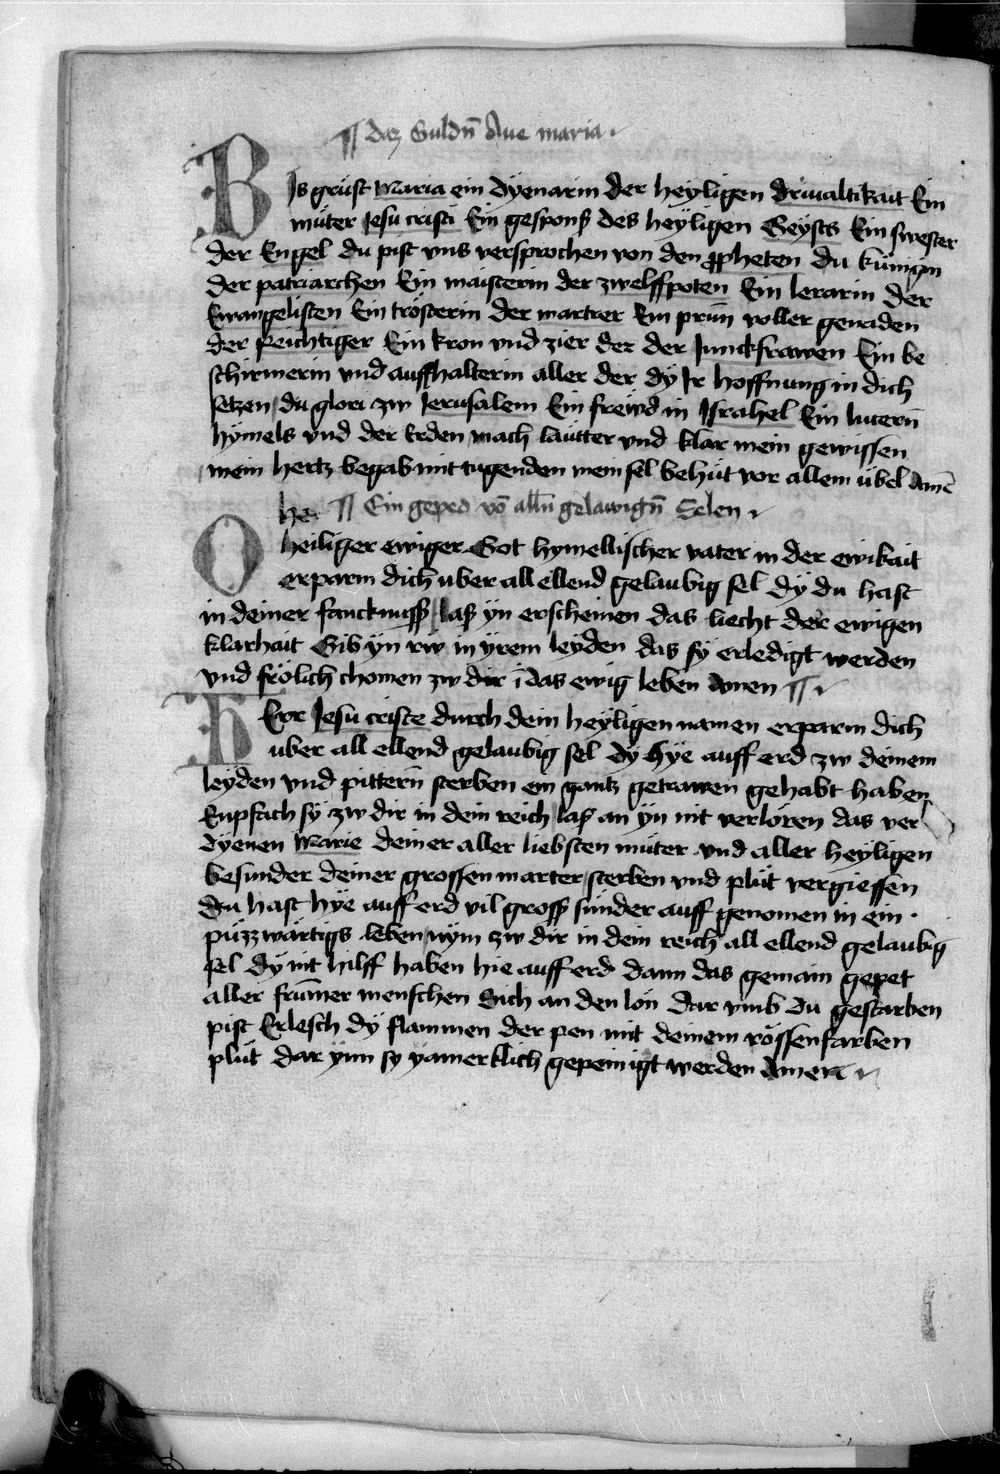 ¶ daz Guldn̄ Aue maria
BIs grüst Maria ein dyenarin der heyligen driualtikait Ein
müter Jesu cristi Ein gespons des heyligen Geysts Ein swester
der Engel du pist vns versprochen von den ppheten du künigin
der patriarchen Ein maisterin der zwelffpoten Ein lerarin der
Ewangelisten Ein trösterin der martrer Ein prün voller genaden
der peichtiger Ein kron vnd zier der der Junckfrawen Ein be
schirmerin vnd auffhalterin aller der dy Ir hoffnung in dich
setzen du glori zw Jerusalem Ein frewd in Israhel Ein lucern̄
hymels vnd der Erden mach lautter vnd klar mein gewissen
mein hertz begab mit tugenden mein sel behüt vor allem übel Amē
he ¶ Ein geped vō alln̄ gelawign̄ Selen
O heiliger ewiger Got hymellischer vater in der ewikait
erparm dich uber all ellend gelaubig sel dy du hast
in deiner fancknuss las yn erscheinen das liecht der ewigen
klarhait Gib yn rw in yrem leyden das sy erledigt werden
vnd frölich chomen zw dir ī das ewig leben Amen ¶
HErr Jesu criste durch dein heyligen namen erparm dich
uber all ellend gelaubig sel dy hye auff erd zw deinem
leyden vnd pittern sterben ein gantz getrawen gehabt haben
Enpfach sy zw dir in dein reich las an yn nit verloren das ver
dyenen Marie deiner aller liebsten müter vnd aller heyligen
besunder deiner grossen marter sterben vnd plüt vergiessen
du hast hye auff erd vil gross sunder auff genomen in ein
püzzwärtigs leben nym zw dir in dein reich all ellend gelaubig
sel dy nit hilff haben hie auff erd dann das gemain gepet
aller frümer menschen Sich an den lon dar vmb du gestarben
pist Erlesch dy flammen der pen mit deinem rössenfarben
plüt dar ynn sy yamerklich gepeinigt werden Amen